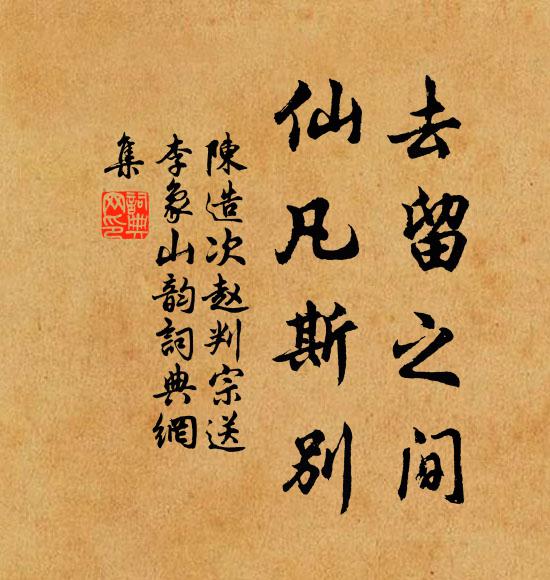 去留之间
仙凡斯别
陳造次赵判宗送
李象山韵詞典網
集
詞典網印